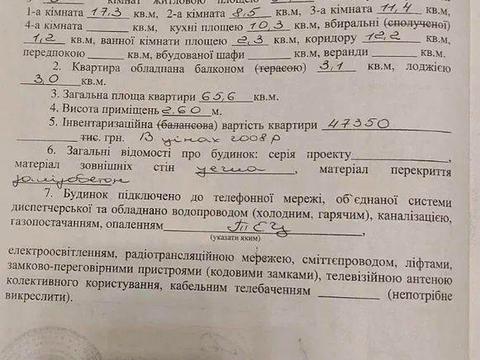 кімнат житловою площею
1-а кімната 17,3 кв.м, 2-а кімната 8,5 кв.м, 3-а кімната 11,4 кв.м,
4-а кімната кв.м, кухні площею 10,3 кв.м, вбиральні (сполученої)
1,2 кв.м, ванної кімнати площею 2,3 кв.м, коридору 12,2 кв.м,
передпокою кв.м, вбудованої шафи кв.м, веранди кв.м.
2. Квартира обладнана балконом (терасою) 3,1 кв.м, лоджією
3,0 кв.м.
3. Загальна площа квартири 65,6 кв.м.
4. Висота приміщень 2.60 м.
5. Інвентаризаційна (балансова) вартість квартири 47350
тис. грн. В цінах 2008 р
6. Загальні відомості про будинок: серія проекту ,
матеріал зовнішніх стін цегла , матеріал перекриття
залізобетон
7. Будинок підключено до телефонної мережі, об'єднаної системи
диспетчерської та обладнано водопроводом (холодним, гарячим), каналізацією,
газопостачанням, опаленням ТЕЦ
(указати яким)
електроосвітленням, радіотрансляційною мережею, сміттєпроводом, ліфтами,
замково-переговірними пристроями (кодовими замками), телевізійною антеною
колективного користування, кабельним телебаченням (непотрібне
викреслити).